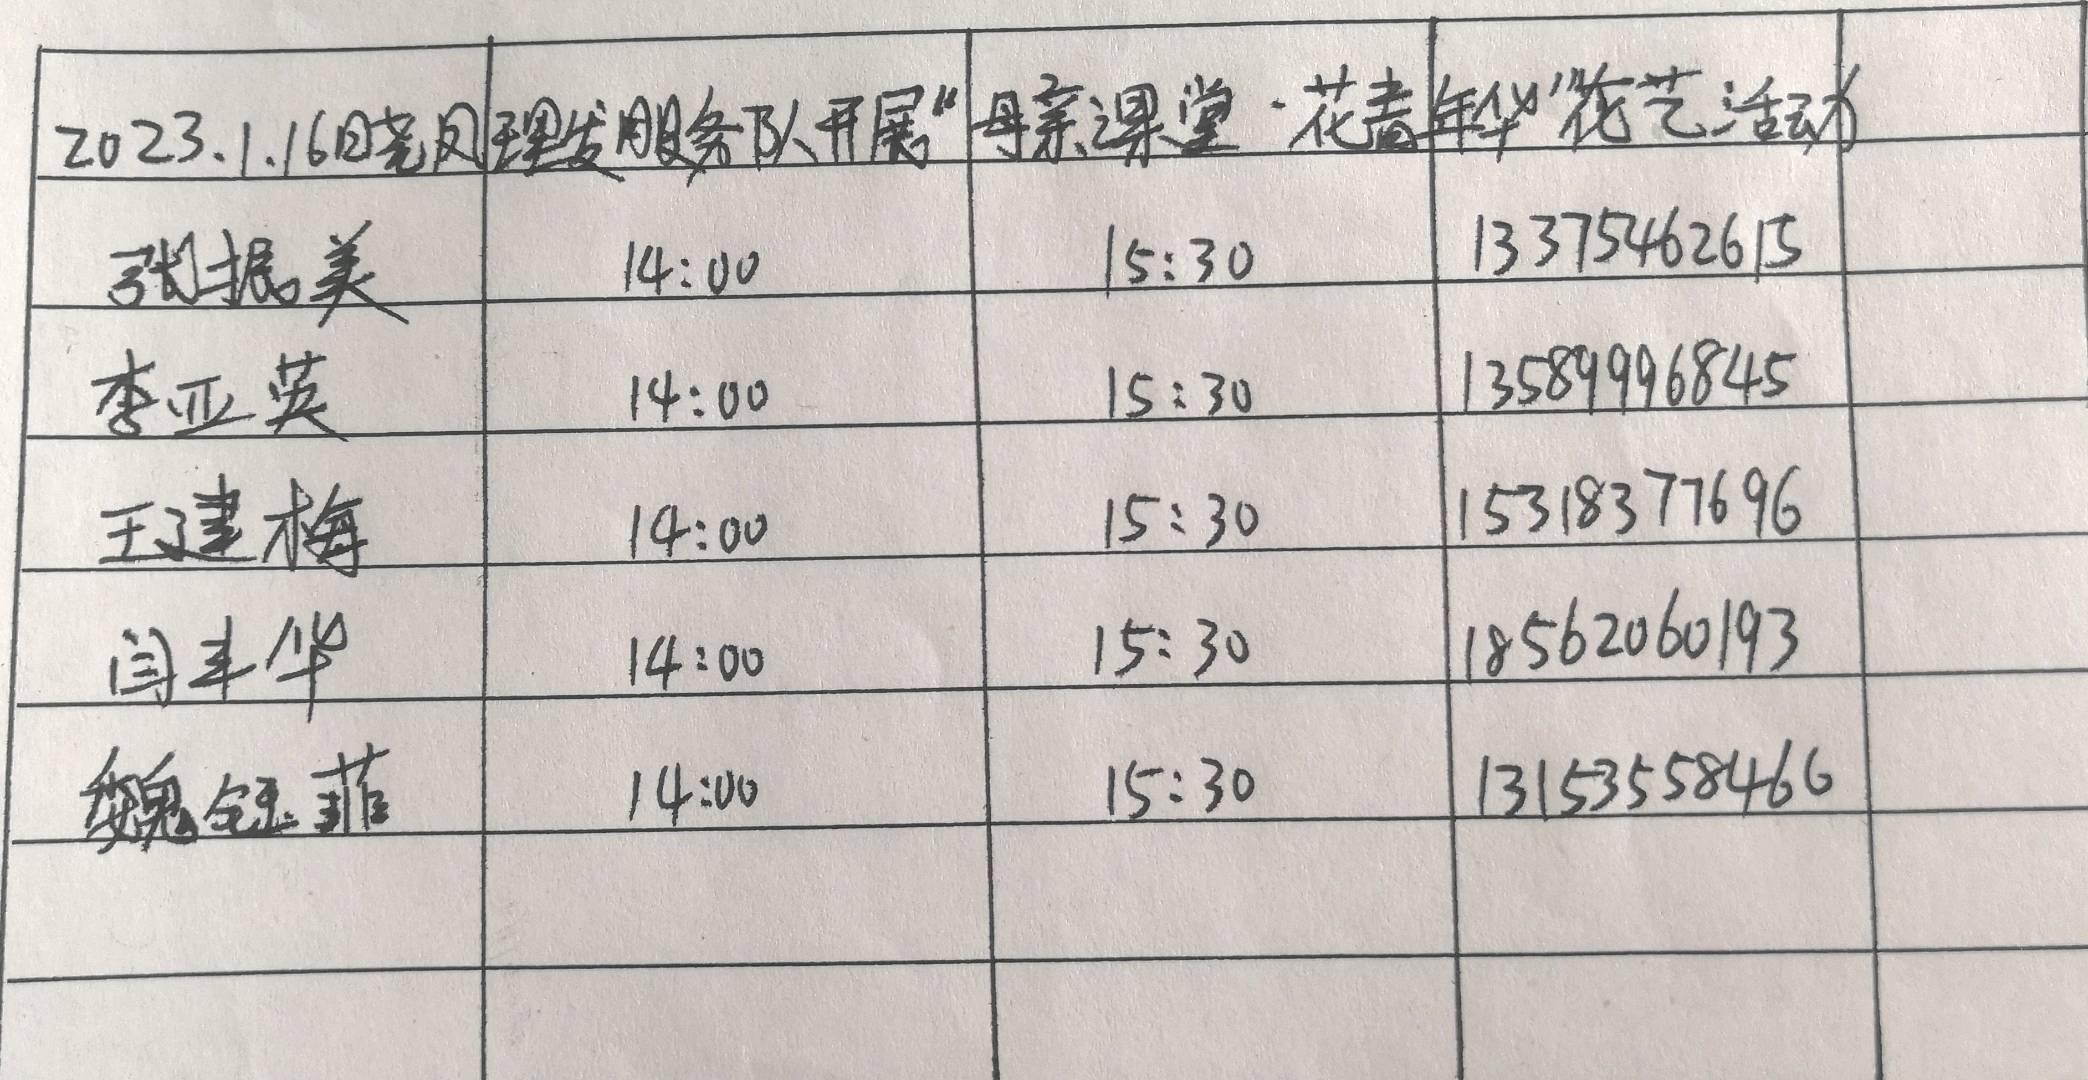 2023.1.16日尧凤理发服务队开展“母亲课堂·花青年华”花艺活动
张振美 14:00 15:30 13375462615
李亚英 14:00 15:30 13589996845
王建梅 14:00 15:30 15318377696
闫丰华 14:00 15:30 18562060193
魏钰菲 14:00 15:30 13153558466